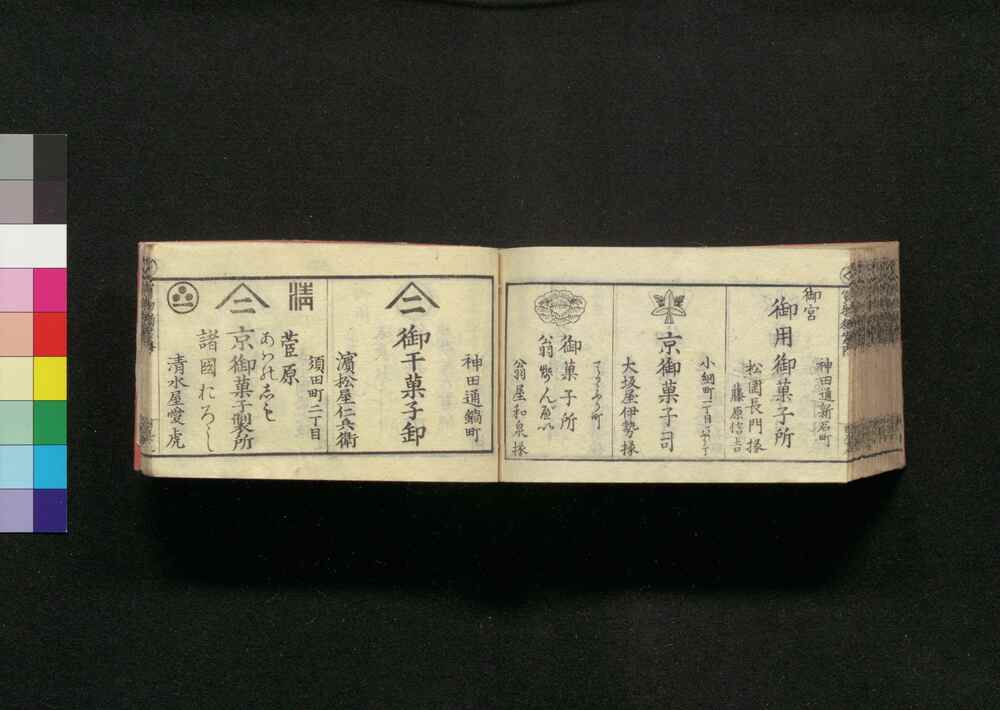 神田通新石町
御宮
御用御菓子所
松園長門掾
藤原信吉
小網町一丁目
京御菓子司
大坂屋伊勢掾
てりふり町
御菓子所
翁せんべい
翁屋和泉掾
神田通鍋町
御干菓子卸
濱松屋仁兵衛
須田町二丁目
清
菅原
京御菓子製所
諸國おろし
清水屋愛虎